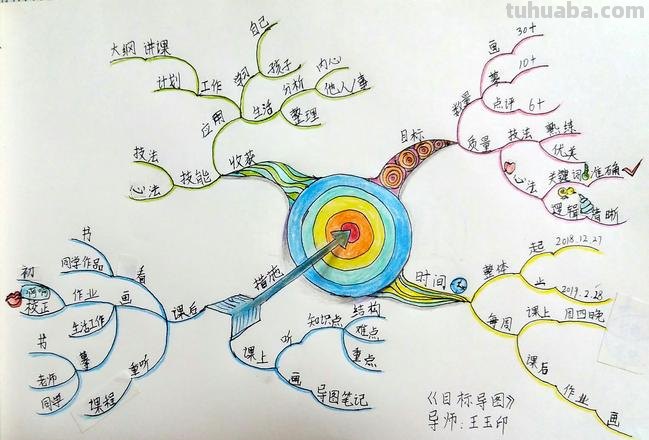 tuhuaba.com
目标
数量
画
30+
摹
10+
点评 6+
质量
技法
熟练
优美
心法
关键词
准确
逻辑
清晰
时间
整体
起
2018.12.27
止
2019.2.28
每周
课上
周四晚
课后
作业
画
收获
应用
工作
大纲 讲课
计划
学习
自己
孩子
生活
分析
内心
他人/事
整理
技能
技法
心法
措施
课后
看
书
同学作品
画
作业
初
啊啊
校正
生活工作
摹
书
老师
同学
重听
课程
课上
听
知识点
结构
难点
重点
画
导图笔记
《目标导图》
导师:王玉印